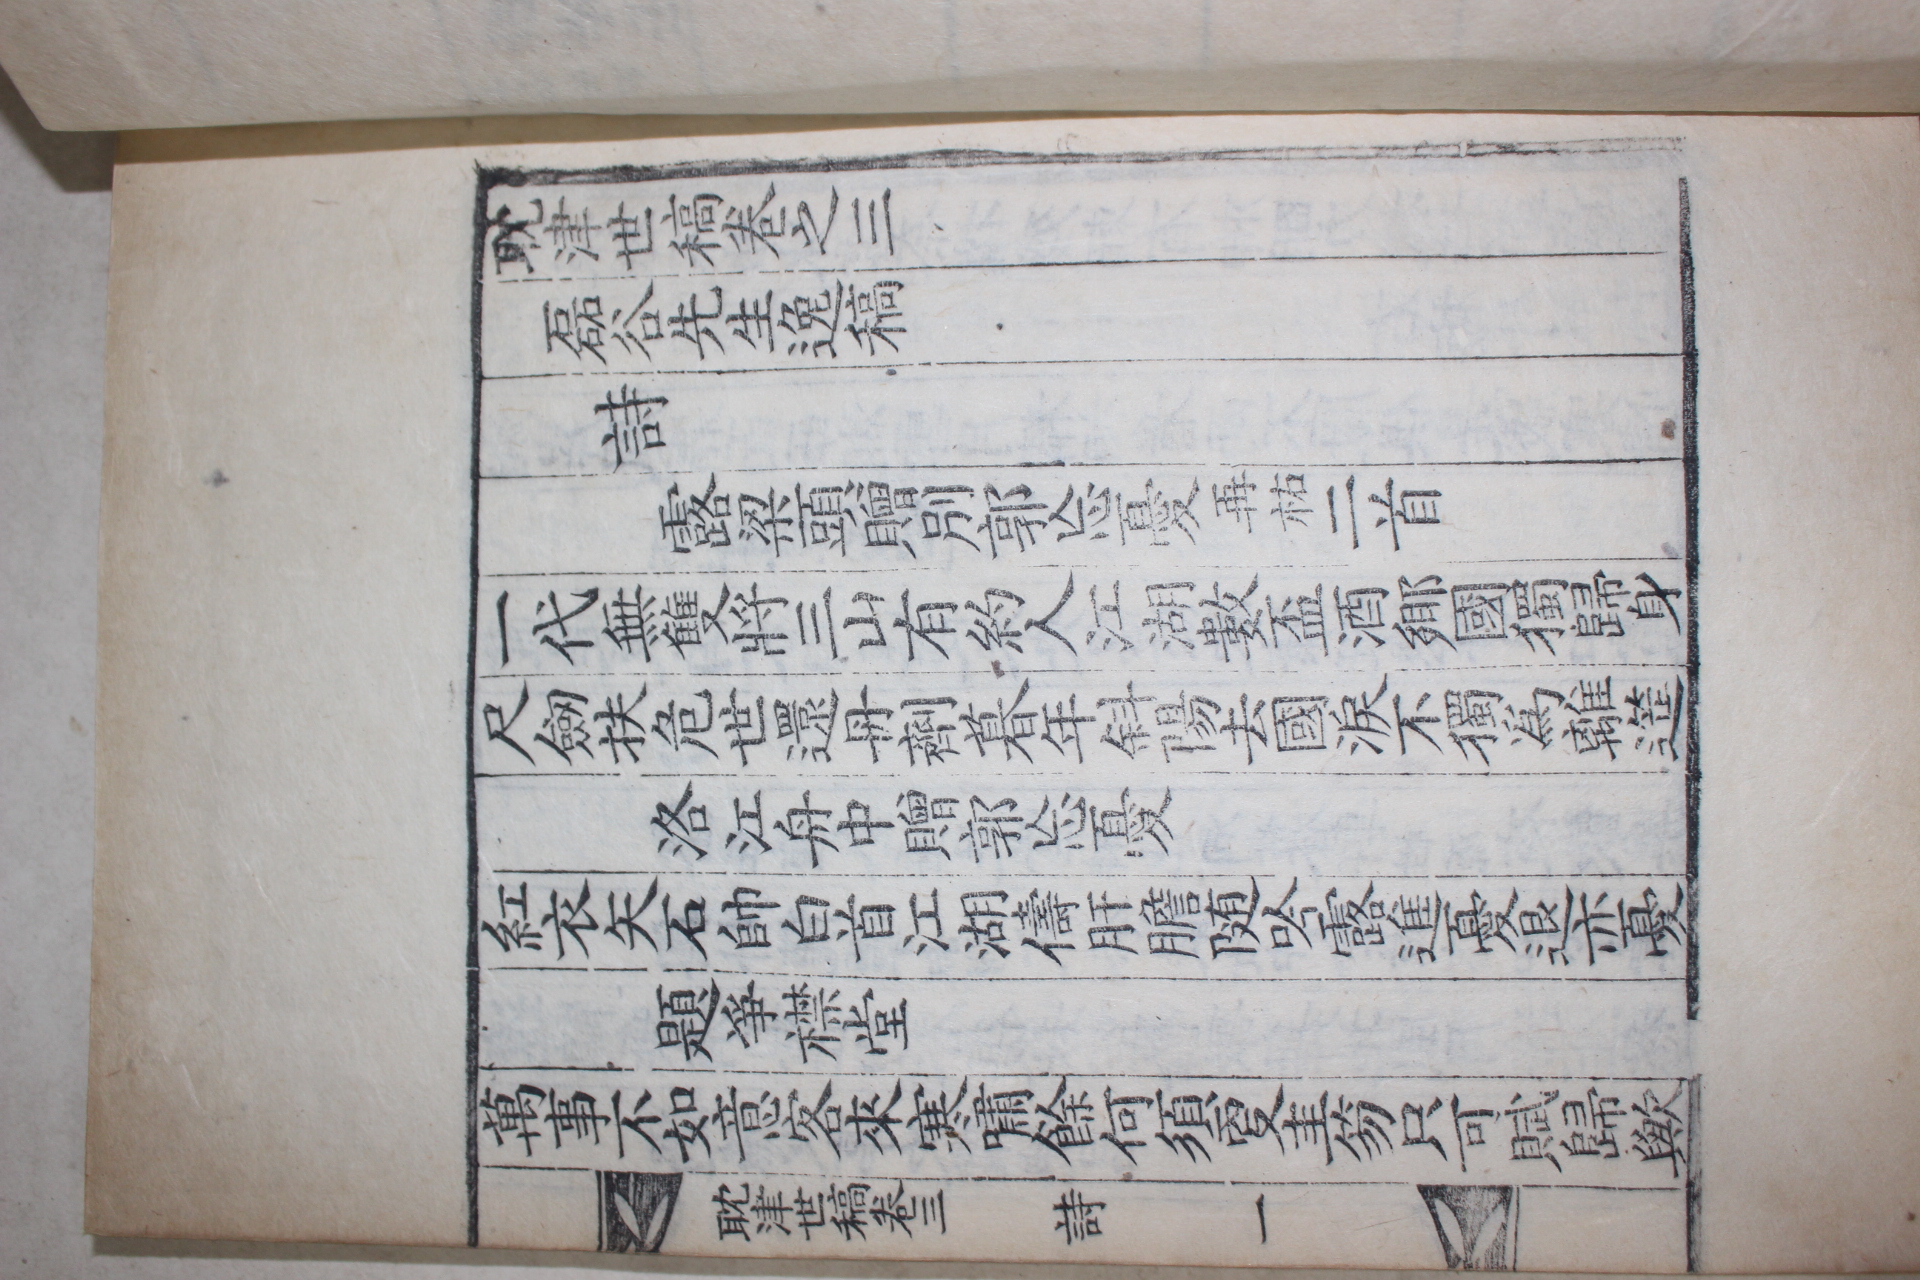 耽津世稿卷之三
磊谷先生逸稿
詩
露梁頭贈別郭忘憂再祐二首
一代無雙將三山有約人江湖數盃酒鄕國獨歸身
尺劒扶危世還丹劑暮年斜陽去國淚不獨爲離筵
洛江舟中贈郭忘憂
紅衣矢石帥白首江湖儔肝膽隨吟露進憂退亦憂
題爭襟堂
萬事不如意客來寒嘯餘何須愛圭笏只可賦歸歟
耽津世稿卷三 詩 一